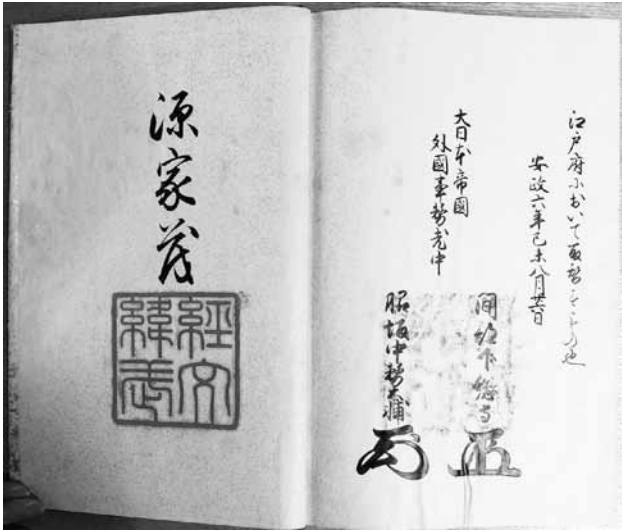 江戸府において取替
安政六年己未八月廿六日
大日本帝國
外國事務老中
間部下總守
脇坂中務大輔
源家茂
經文
緯武